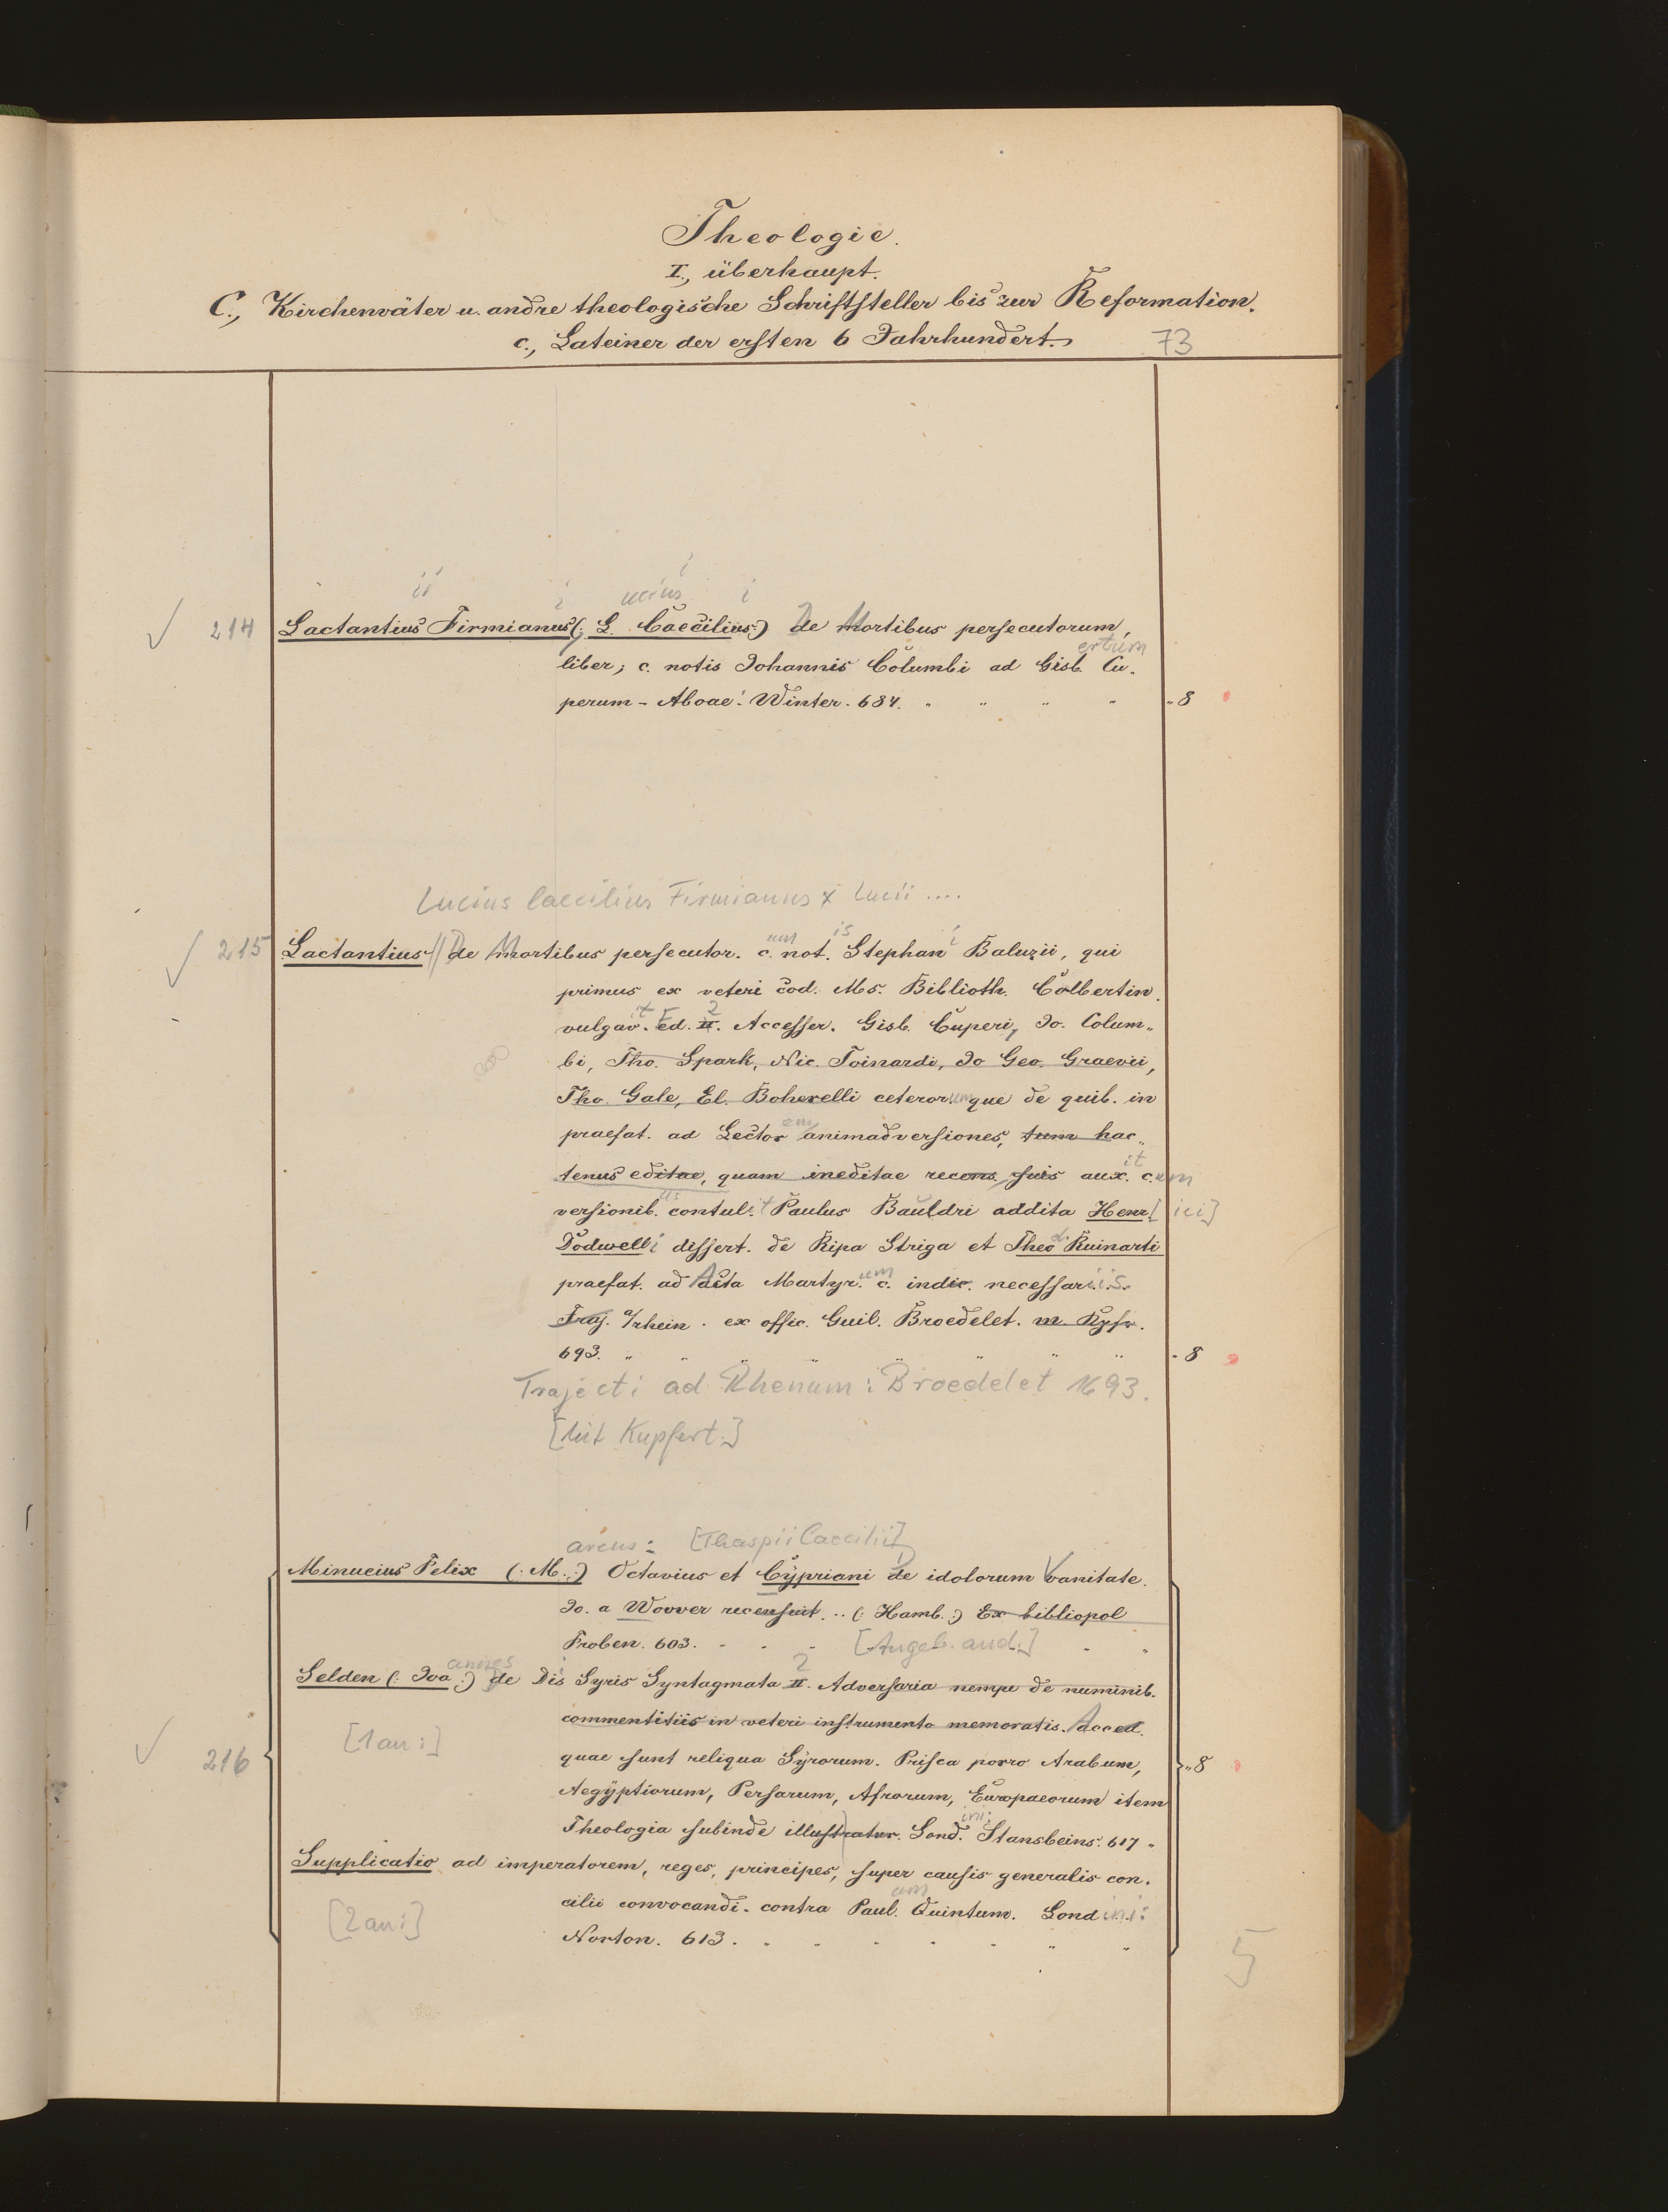 Theologie.
I., überhaupt.
C., Kirchenväter u. andre theologische Schriftsteller bis zur Reformation.
c., Lateiner der ersten 6 Jahrhundert. 73
ii i ucius i i
214 Lactantius Firmianus (: L. Caecilius:) De Mortibus persecutorum,
ertum
liber; c. notis Johannis Columbi ad Gisb. Cu-
perum - Aboae: Winter. 684. " " " " " 8
Lucius Caecilius Firmianus x Lucii ....
215 Lactantius // De Mortibus persecutor. cum not.is Stephani Baluzii, qui
primus ex veteri Cod. Ms. Biblioth. Colbertin.
vulgavit. Ed. II. 2 Accesser. Gisb. Cuperi, Jo. Colum-
bi, Tho. Spark, Nic. Toinardi, Jo Geo. Graevii,
Tho. Gale, El. Boherelli ceterorumque de quib. in
praefat. ad Lectorem animadversiones, tum hac-
tenus editae, quam ineditae recens. suis auxit c.um
versionib.us contulit Paulus Bauldri addita Henr.[ici]
Dodwelli dissert. de Ripa Striga et Theod. Ruinarti
praefat. ad Acta Martyr.um c. indic. necessariis.
Traj. a/rhein. ex offic. Guil. Broedelet. m. Kpfr.
693. " " " " " " " " 8
Trajecti ad Rhenum: Broedelet 1693.
[Mit Kupfert.]
arcus: [Thasii Caecilii]
Minucius Felix (: M.:) Octavius et Cypriani De idolorum Vanitate.
Jo. a Wovver recensuit. .. (: Hamb.:) Ex bibliopol
Froben. 603. " " " [Angeb. and.] " "
Selden (: Joannes:) De Dis Syris Syntagmata II. 2 Adversaria nempe de numinib.
commentitiis in veteri instrumento memoratis. Acced.
[1 an:]
216 quae sunt reliqua Syrorum. Prisca porro Arabum, " 8
Aegyptiorum, Persarum, Afrorum, Europaeorum item
Theologia subinde illustratur. Lond.ini: Stansbeins. 617 "
Supplicatio ad imperatorem, reges, principes, super causis generalis con-
cilii convocandi. contra Paul.um Quintum. Londini:
[2 an:]
Norton. 613. " " " " " " "
5